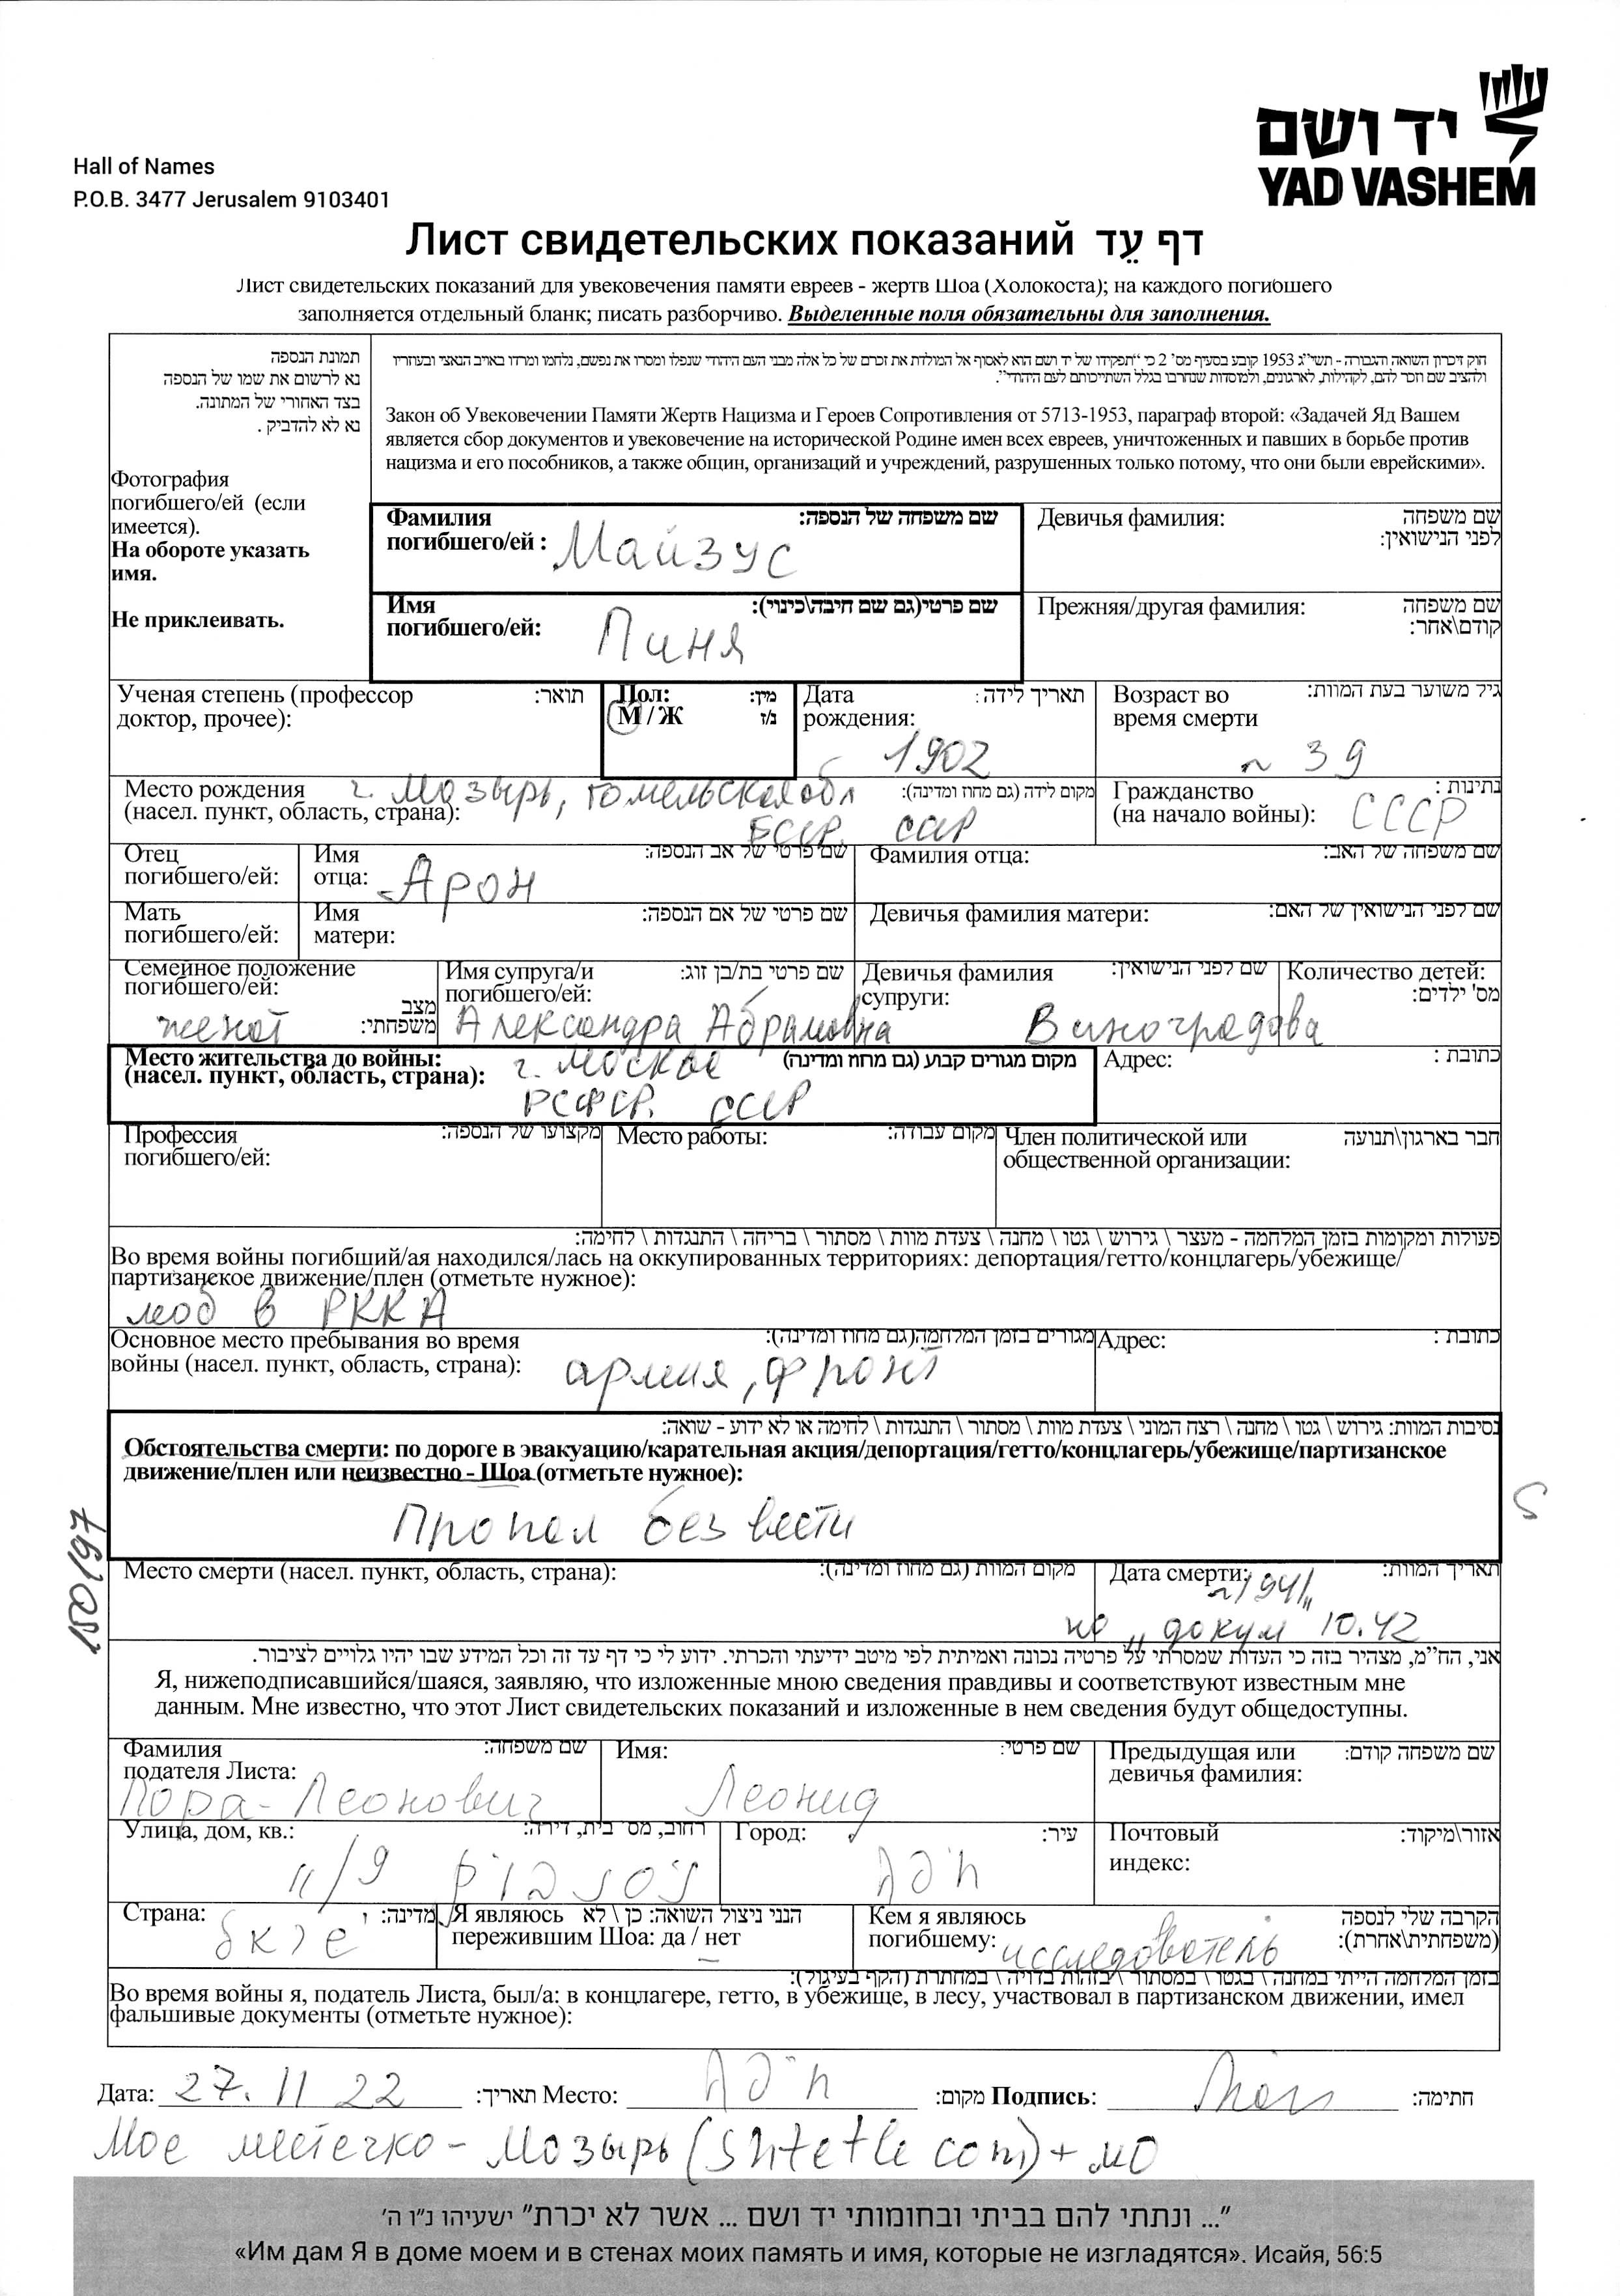 יד ושם
YAD VASHEM
Hall of Names
P.O.B. 3477 Jerusalem 9103401
Лист свидетельских показаний דף עֵד
Лист свидетельских показаний для увековечения памяти евреев - жертв Шоа (Холокоста); на каждого погибшего
заполняется отдельный бланк; писать разборчиво. Выделенные поля обязательны для заполнения.
תמונת הנספה
נא לרשום את שמו של הנספה
בצד האחורי של המתונה.
נא לא להדביק .
Фотография
погибшего/ей (если
имеется).
На обороте указать
имя.
Не приклеивать.
חוק זיכרון השואה והגבורה - תשי״ג 1953 קובע בסעיף מס' 2 כי "תפקידו של יד ושם הוא לאסוף אל המולדת את זכרם של כל אלה מבני העם היהודי שנפלו ומסרו את נפשם, נלחמו ומרדו באויב הנאצי ובעוזריו
ולהציב שם וזכר להם, לקהילות, לארגונים, ולמוסדות שנחרבו בגלל השתייכותם לעם היהודי".
Закон об Увековечении Памяти Жертв Нацизма и Героев Сопротивления от 5713-1953, параграф второй: «Задачей Яд Вашем
является сбор документов и увековечение на исторической Родине имен всех евреев, уничтоженных и павших в борьбе против
нацизма и его пособников, а также общин, организаций и учреждений, разрушенных только потому, что они были еврейскими».
Фамилия погибшего/ей : Майзус שם משפחה של הנספה:
Девичья фамилия: שם משפחה לפני הנישואין:
Имя погибшего/ей: Пиня שם פרטי(גם שם חיבה\כינוי):
Прежняя/другая фамилия: שם משפחה קודם\אחר:
Ученая степень (профессор доктор, прочее): תואר:
Пол: М / Ж מין: ז/נ
Дата рождения: 1902 תאריך לידה :
Возраст во время смерти ~ 39 גיל משוער בעת המוות:
Место рождения (насел. пункт, область, страна): г. Мозырь, Гомельская обл מקום לידה (גם מחוז ומדינה):
БССР, СССР
Гражданство (на начало войны): СССР נתינות :
Отец погибшего/ей: Имя отца: Арон שם פרטי של אב הנספה:
Фамилия отца: שם משפחה של האב:
Мать погибшего/ей: Имя матери: שם פרטי של אם הנספה:
Девичья фамилия матери: שם לפני הנישואין של האם:
Семейное положение погибшего/ей: женат מצב משפחתי:
Имя супруга/и погибшего/ей: Александра Абрамовна שם פרטי בת/בן זוג:
Девичья фамилия супруги: Виноградова שם לפני הנישואין:
Количество детей: מס' ילדים:
Место жительства до войны: (насел. пункт, область, страна): г. Москва מקום מגורים קבוע (גם מחוז ומדינה)
РСФСР, СССР
Адрес: כתובת :
Профессия погибшего/ей: מקצועו של הנספה:
Место работы: מקום עבודה:
Член политической или общественной организации: חבר בארגון\תנועה
פעולות ומקומות בזמן המלחמה - מעצר \ גירוש \ גטו \ מחנה \ צעדת מוות \ מסתור \ בריחה \ התנגדות \ לחימה:
Во время войны погибший/ая находился/лась на оккупированных территориях: депортация/гетто/концлагерь/убежище/
партизанское движение/плен (отметьте нужное):
моб в РККА
Основное место пребывания во время войны (насел. пункт, область, страна): армия, фронт מגורים בזמן המלחמה(גם מחוז ומדינה):
Адрес: כתובת :
נסיבות המוות: גירוש \ גטו \ מחנה \ רצח המוני \ צעדת מוות \ מסתור \ התנגדות \ לחימה או לא ידוע - שואה:
Обстоятельства смерти: по дороге в эвакуацию/карательная акция/депортация/гетто/концлагерь/убежище/партизанское
движение/плен или неизвестно - Шоа (отметьте нужное):
Пропал без вести
150197
Место смерти (насел. пункт, область, страна): מקום המוות (גם מחוז ומדינה):
Дата смерти: ~1941 תאריך המוות:
по "докум" 10.42
אני, הח״מ, מצהיר בזה כי העדות שמסרתי על פרטיה נכונה ואמיתית לפי מיטב ידיעתי והכרתי. ידוע לי כי דף עד זה וכל המידע שבו יהיו גלויים לציבור.
Я, нижеподписавшийся/шаяся, заявляю, что изложенные мною сведения правдивы и соответствуют известным мне
данным. Мне известно, что этот Лист свидетельских показаний и изложенные в нем сведения будут общедоступны.
Фамилия подателя Листа: Пора-Леонович שם משפחה:
Имя: Леонид שם פרטי:
Предыдущая или девичья фамилия: שם משפחה קודם:
Улица, дом, кв.: רחוב, מס' בית, דירה:
Город: עיר:
Почтовый индекс: אזור\מיקוד:
Страна: מדינה:
Я являюсь пережившим Шоа: да / нет הנני ניצול השואה: כן \ לא
Кем я являюсь погибшему: исследователь הקרבה שלי לנספה (משפחתית\אחרת):
בזמן המלחמה הייתי במחנה \ בגטו \ במסתור \ בזהות בדויה \ במחתרת (הקף בעיגול):
Во время войны я, податель Листа, был/а: в концлагере, гетто, в убежище, в лесу, участвовал в партизанском движении, имел
фальшивые документы (отметьте нужное):
Дата: 27.11 22 תאריך: Место: מקום: Подпись: חתימה:
Мое местечко - Мозырь (Shtetle com) + МО
"... ונתתי להם בביתי ובחומותי יד ושם ... אשר לא יכרת" ישעיהו נ"ו ה'
«Им дам Я в доме моем и в стенах моих память и имя, которые не изгладятся». Исайя, 56:5